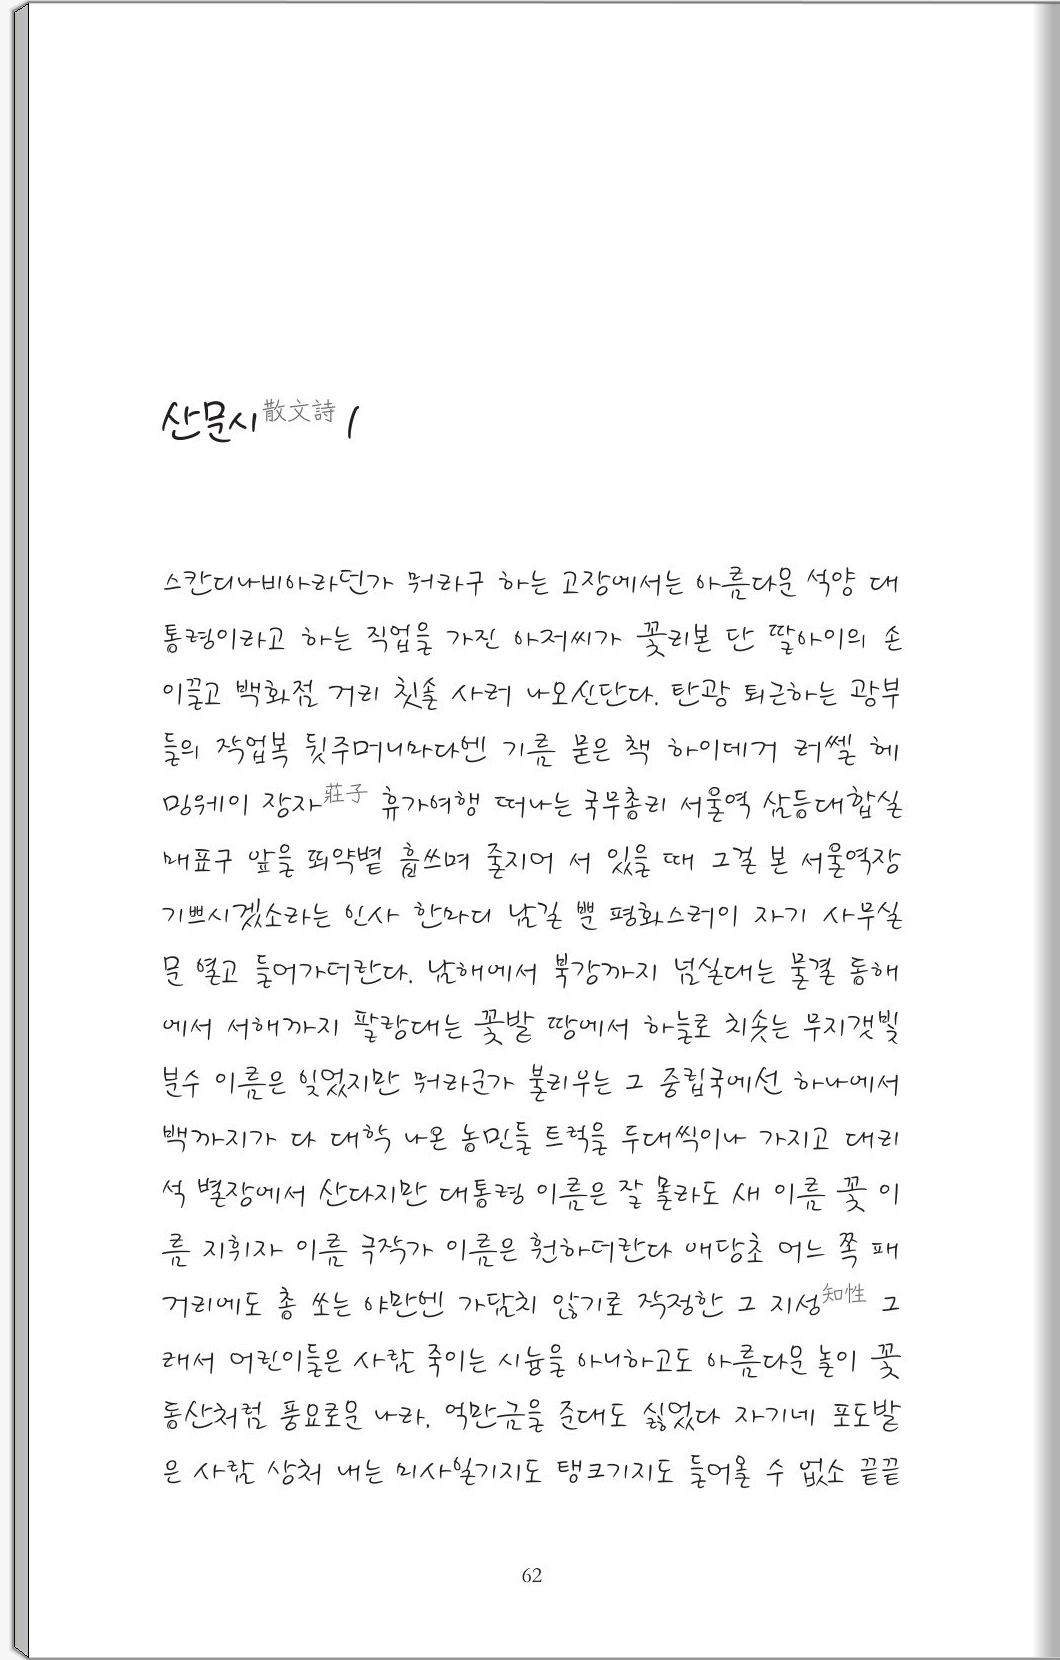 산문시散文詩 1
스칸디나비아라던가 뭐라구 하는 고장에서는 아름다운 석양 대
통령이라고 하는 직업을 가진 아저씨가 꽃리본 단 딸아이의 손
이끌고 백화점 거리 칫솔 사러 나오신단다. 탄광 퇴근하는 광부
들의 작업복 뒷주머니마다엔 기름 묻은 책 하이데거 러쎌 헤
밍웨이 장자莊子 휴가여행 떠나는 국무총리 서울역 삼등대합실
매표구 앞을 뙤약볕 흡쓰며 줄지어 서 있을 때 그걸 본 서울역장
기쁘시겠소라는 인사 한마디 남길 뿐 평화스러이 자기 사무실
문 열고 들어가더란다. 남해에서 북강까지 넘실대는 물결 동해
에서 서해까지 팔랑대는 꽃밭 땅에서 하늘로 치솟는 무지갯빛
분수 이름은 잊었지만 뭐라군가 불리우는 그 중립국에선 하나에서
백까지가 다 대학 나온 농민들 트럭을 두대씩이나 가지고 대리
석 별장에서 산다지만 대통령 이름은 잘 몰라도 새 이름 꽃 이
름 지휘자 이름 극작가 이름은 훤하더란다 애당초 어느 쪽 패
거리에도 총 쏘는 야만엔 가담치 않기로 작정한 그 지성知性 그
래서 어린이들은 사람 죽이는 시늉을 아니하고도 아름다운 놀이 꽃
동산처럼 풍요로운 나라, 억만금을 준대도 싫었다 자기네 포도밭
은 사람 상처 내는 미사일기지도 탱크기지도 들어올 수 없소 끝끝
62